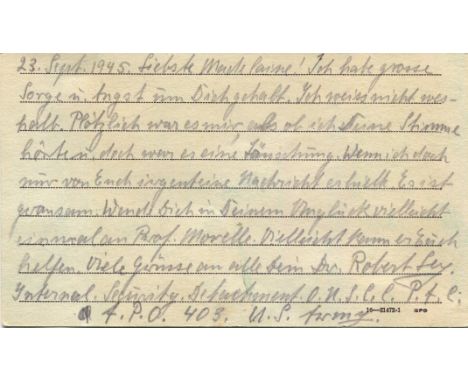 23. Sept. 1945. Liebste Madeleine! Ich habe grosse
Sorge u. Angst um Dich gehabt. Ich weis nicht wes-
halb. Plötzlich war es mir, als ob ich Deine Stimme
hörte u. doch war es eine Täusschung. Wenn ich doch
nur von Euch irgenteine Nachricht erhielt. Es ist
gerausam. Wende Dich in Deinem Unglück vielleicht
einmal an Prof. Morelle. Vielleicht kann er Euch
helfen. Viele Grüsse an alle Dein Dr. Robert Ley.
Internal. Security. Detachment. O.U.S.C.C. P.t.C.
A.P.O. 403. U.S. Army.
16—21472-1 GPO